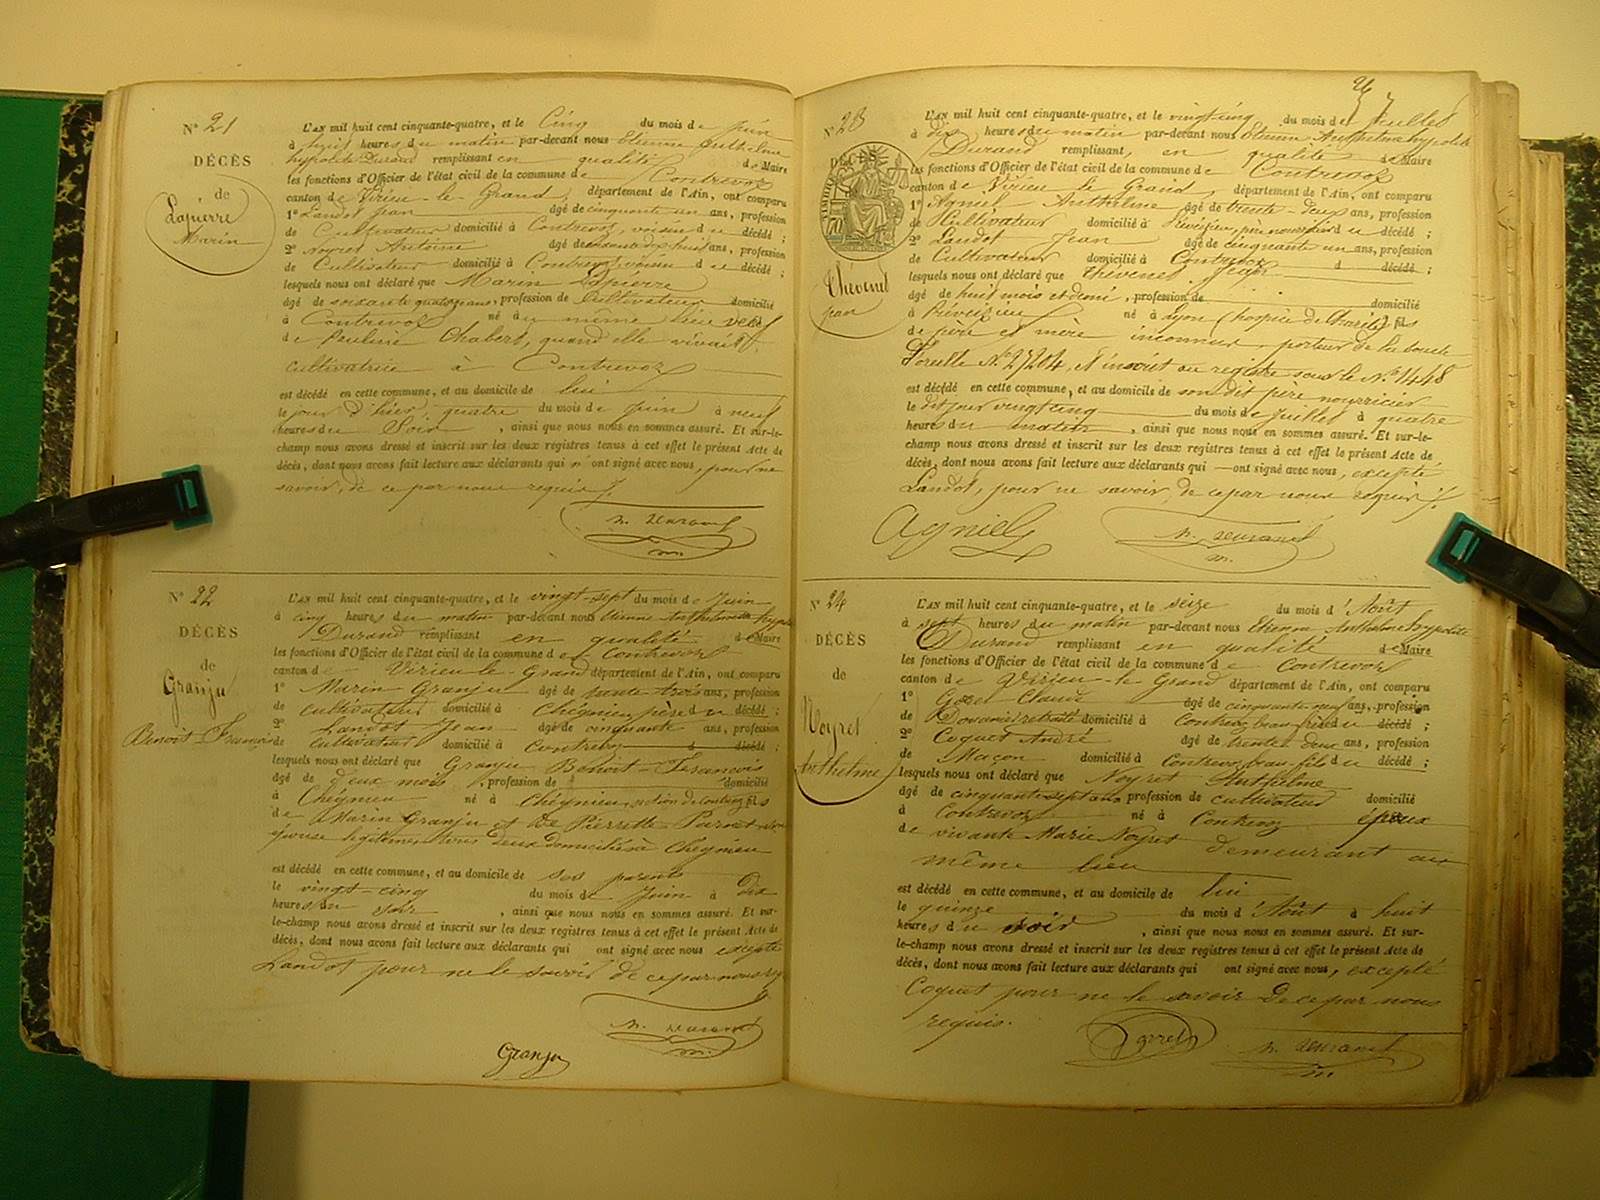 Nº 21
DÉCÈS
de
Lapierre
Marin
L'AN mil huit cent cinquante-quatre, et le Cinq du mois de juin
à huit heures du matin par-devant nous Etienne Anthelme
hypolite Durand remplissant en qualité de Maire
les fonctions d'Officier de l'état civil de la commune de Contrevoz
canton de Virieu-le-Grand, département de l'Ain, ont comparu
1º Landot Jean âgé de cinquante un ans, profession
de Cultivateur domicilié à Contrevoz, voisin du décédé ;
2º Noyret Antoine âgé de ans, profession
de Cultivateur domicilié à Contrevoz, voisin du décédé ;
lesquels nous ont déclaré que Marin Lapierre
âgé de soixante quatorze ans, profession de Cultivateur domicilié
à Contrevoz né au même lieu
de Pauline Chabert, quand elle vivait
cultivatrice à Contrevoz
est décédé en cette commune, et au domicile de lui
le jour d'hier, quatre du mois de Juin à neuf
heures du Soir, ainsi que nous nous en sommes assuré. Et sur-le-
champ nous avons dressé et inscrit sur les deux registres tenus à cet effet le présent Acte de
décès, dont nous avons fait lecture aux déclarants qui n'ont signé avec nous, pour ne
savoir, de ce par nous requis /.
h. Durand
Nº 22
DÉCÈS
de
Granju
Benoit François
L'AN mil huit cent cinquante-quatre, et le vingt-sept du mois de Juin
à cinq heures du matin par-devant nous Etienne Anthelme hypolite
Durand remplissant en qualité de Maire
les fonctions d'Officier de l'état civil de la commune de Contrevoz
canton de Virieu-le-Grand département de l'Ain, ont comparu
1º Marin Granju âgé de trente trois ans, profession
de cultivateur domicilié à Chéynieu père du décédé ;
2º Landot Jean âgé de cinquante ans, profession
de cultivateur domicilié à Contrevoz d décédé ;
lesquels nous ont déclaré que Granju Benoit-François
âgé de deux mois, profession de domicilié
à Chéynieu né à Chéynieu, section de Contrevoz fils
de Marin Granju et de Pierrette Parnet son
épouse légitime tous deux domiciliés à Cheynieu
est décédé en cette commune, et au domicile de ses parents
le vingt-cinq du mois de Juin à Dix
heures du soir, ainsi que nous nous en sommes assuré. Et sur-
le-champ nous avons dressé et inscrit sur les deux registres tenus à cet effet le présent Acte de
décès, dont nous avons fait lecture aux déclarants qui ont signé avec nous excepté
Landot pour ne le savoir de ce par nous
h. Durand
Granju
Nº 23
DÉCÈS
Thévenet
jean
L'AN mil huit cent cinquante-quatre, et le vingt cinq du mois de Juillet
à dix heures du matin par-devant nous Etienne Anthelme hypolite
Durand remplissant, en qualité de Maire
les fonctions d'Officier de l'état civil de la commune de Contrevoz
canton de Virieu le Grand, département de l'Ain, ont comparu
1º Agniel Anthelme âgé de trente-deux ans, profession
de Cultivateur domicilié à Préveizieu, père nourricier du décédé ;
2º Landot Jean âgé de cinquante un ans, profession
de Cultivateur domicilié à Contrevoz d décédé ;
lesquels nous ont déclaré que Thévenet Jean
âgé de huit mois et demi, profession de domicilié
à Préveizieu né à Lyon (hospice de Charité) fils
de père et mère inconnus, porteur de la boucle
d'oreille Nº 27204, et inscrit au registre sous le Nº 1448
est décédé en cette commune, et au domicile de son dit père nourricier
le dit jour vingt cinq du mois de Juillet à quatre
heures du matin, ainsi que nous nous en sommes assuré. Et sur-le-
champ nous avons dressé et inscrit sur les deux registres tenus à cet effet le présent Acte de
décès, dont nous avons fait lecture aux déclarants qui ont signé avec nous, excepté
Landot, pour ne savoir, de ce par nous requis /.
Agniel
h. Durand
Nº 24
DÉCÈS
de
Noyret
Anthelme
L'AN mil huit cent cinquante-quatre, et le seize du mois d'Août
à sept heures du matin par-devant nous Etienne Anthelme hypolite
Durand remplissant en qualité de Maire
les fonctions d'Officier de l'état civil de la commune de Contrevoz
canton de Virieu-le-Grand département de l'Ain, ont comparu
1º Claude âgé de cinquante-neuf ans, profession
de Douanier retraité domicilié à Contrevoz beau-frère du décédé ;
2º Coquet André âgé de trente-deux ans, profession
de Maçon domicilié à Contrevoz beau-fils du décédé ;
lesquels nous ont déclaré que Noyret Anthelme
âgé de cinquante sept ans profession de cultivateur domicilié
à Contrevoz né à Contrevoz époux
de vivante Marie Noyret demeurant au
même lieu
est décédé en cette commune, et au domicile de lui
le quinze du mois d'Août à huit
heures du soir, ainsi que nous nous en sommes assuré. Et sur-
le-champ nous avons dressé et inscrit sur les deux registres tenus à cet effet le présent Acte de
décès, dont nous avons fait lecture aux déclarants qui ont signé avec nous, excepté
Coquet pour ne le savoir de ce par nous
requis.
h. Durand